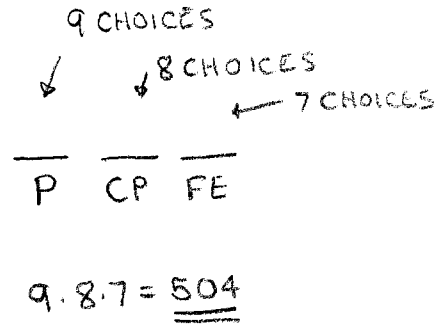 9 CHOICES
8 CHOICES
7 CHOICES
P CP FE
9.8.7 = 504